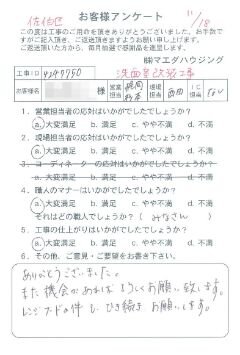 佐伯区
お客様アンケート
11/18
この度は工事のご用命を頂きありがとうございました。お手数ですがご記入頂き、ご返送頂きますようお願い申し上げます。
ご返送頂いた方から、毎月抽選で感謝品を進呈します。
㈱マエダハウジング
工事ID
洗面室改装工事
お客様名
様
営業担当
現場担当
IC担当
なし
1. 営業担当者の応対はいかがでしたでしょうか？
a. 大変満足 b. 満足 c. やや不満 d. 不満
2. 現場担当者の応対はいかがでしたでしょうか？
a. 大変満足 b. 満足 c. やや不満 d. 不満
3. コーディネーターの応対はいかがでしたでしょうか？
a. 大変満足 b. 満足 c. やや不満 d. 不満
4. 職人のマナーはいかがでしたでしょうか？
a. 大変満足 b. 満足 c. やや不満 d. 不満
それはどの職人でしょうか？（ みなさん ）
5. 工事の仕上がりはいかがでしたでしょうか？
a. 大変満足 b. 満足 c. やや不満 d. 不満
6. その他、ご意見・ご要望をお書き下さい。
ありがとうございました。
また機会があればよろしくお願い致します。
レンジフードの件も ひき続き お願いします。